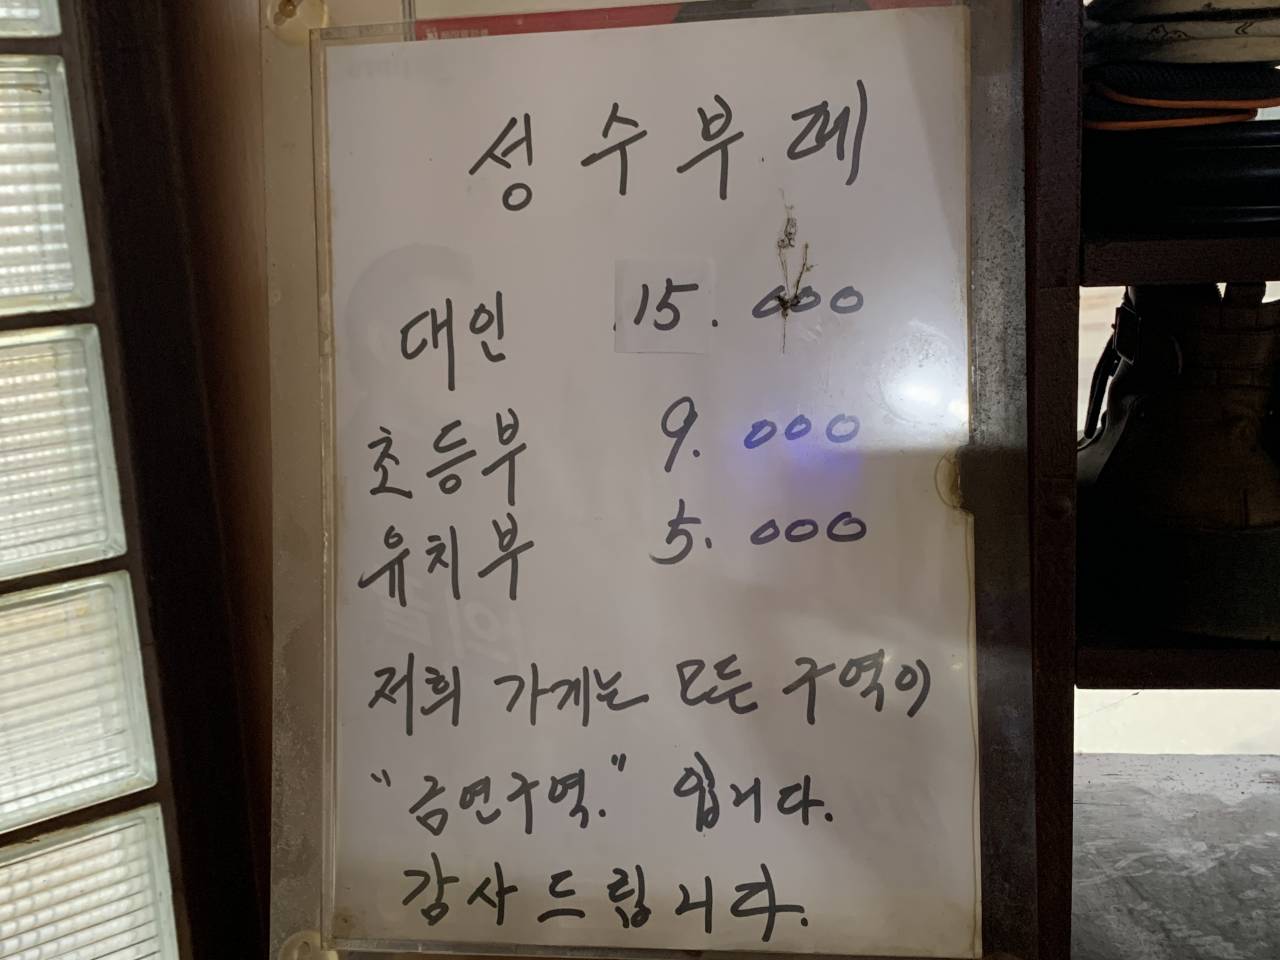 성수부페
대인 15.000
초등부 9.000
유치부 5.000
저희 가게는 모든 구역이
"금연구역." 입니다.
감사드립니다.